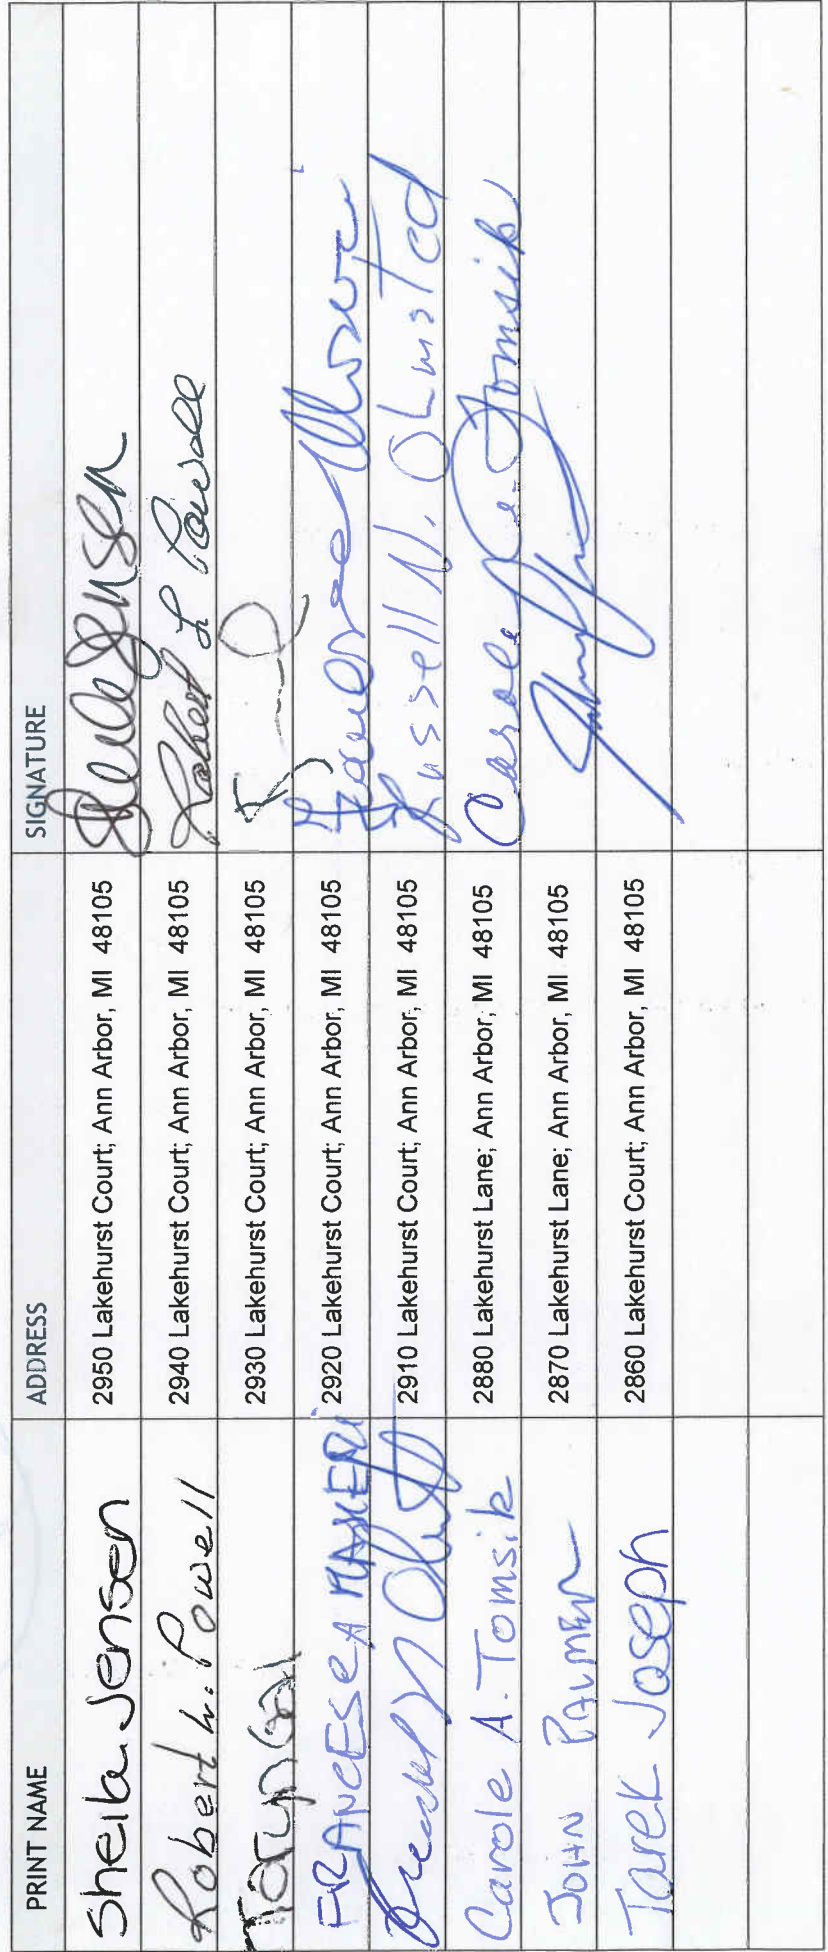 PRINT NAME ADDRESS SIGNATURE
Sheila Jensen 2950 Lakehurst Court; Ann Arbor, MI 48105
Robert L. Powell 2940 Lakehurst Court; Ann Arbor, MI 48105 Robert L Powell
2930 Lakehurst Court; Ann Arbor, MI 48105
FRANCESCA 2920 Lakehurst Court; Ann Arbor, MI 48105
2910 Lakehurst Court; Ann Arbor, MI 48105 Russell N. Olmsted
Carole A. Tomsik 2880 Lakehurst Lane; Ann Arbor, MI 48105 Carole A. Tomsik
JOHN PALMER 2870 Lakehurst Lane; Ann Arbor, MI 48105
Tarek Joseph 2860 Lakehurst Court; Ann Arbor, MI 48105